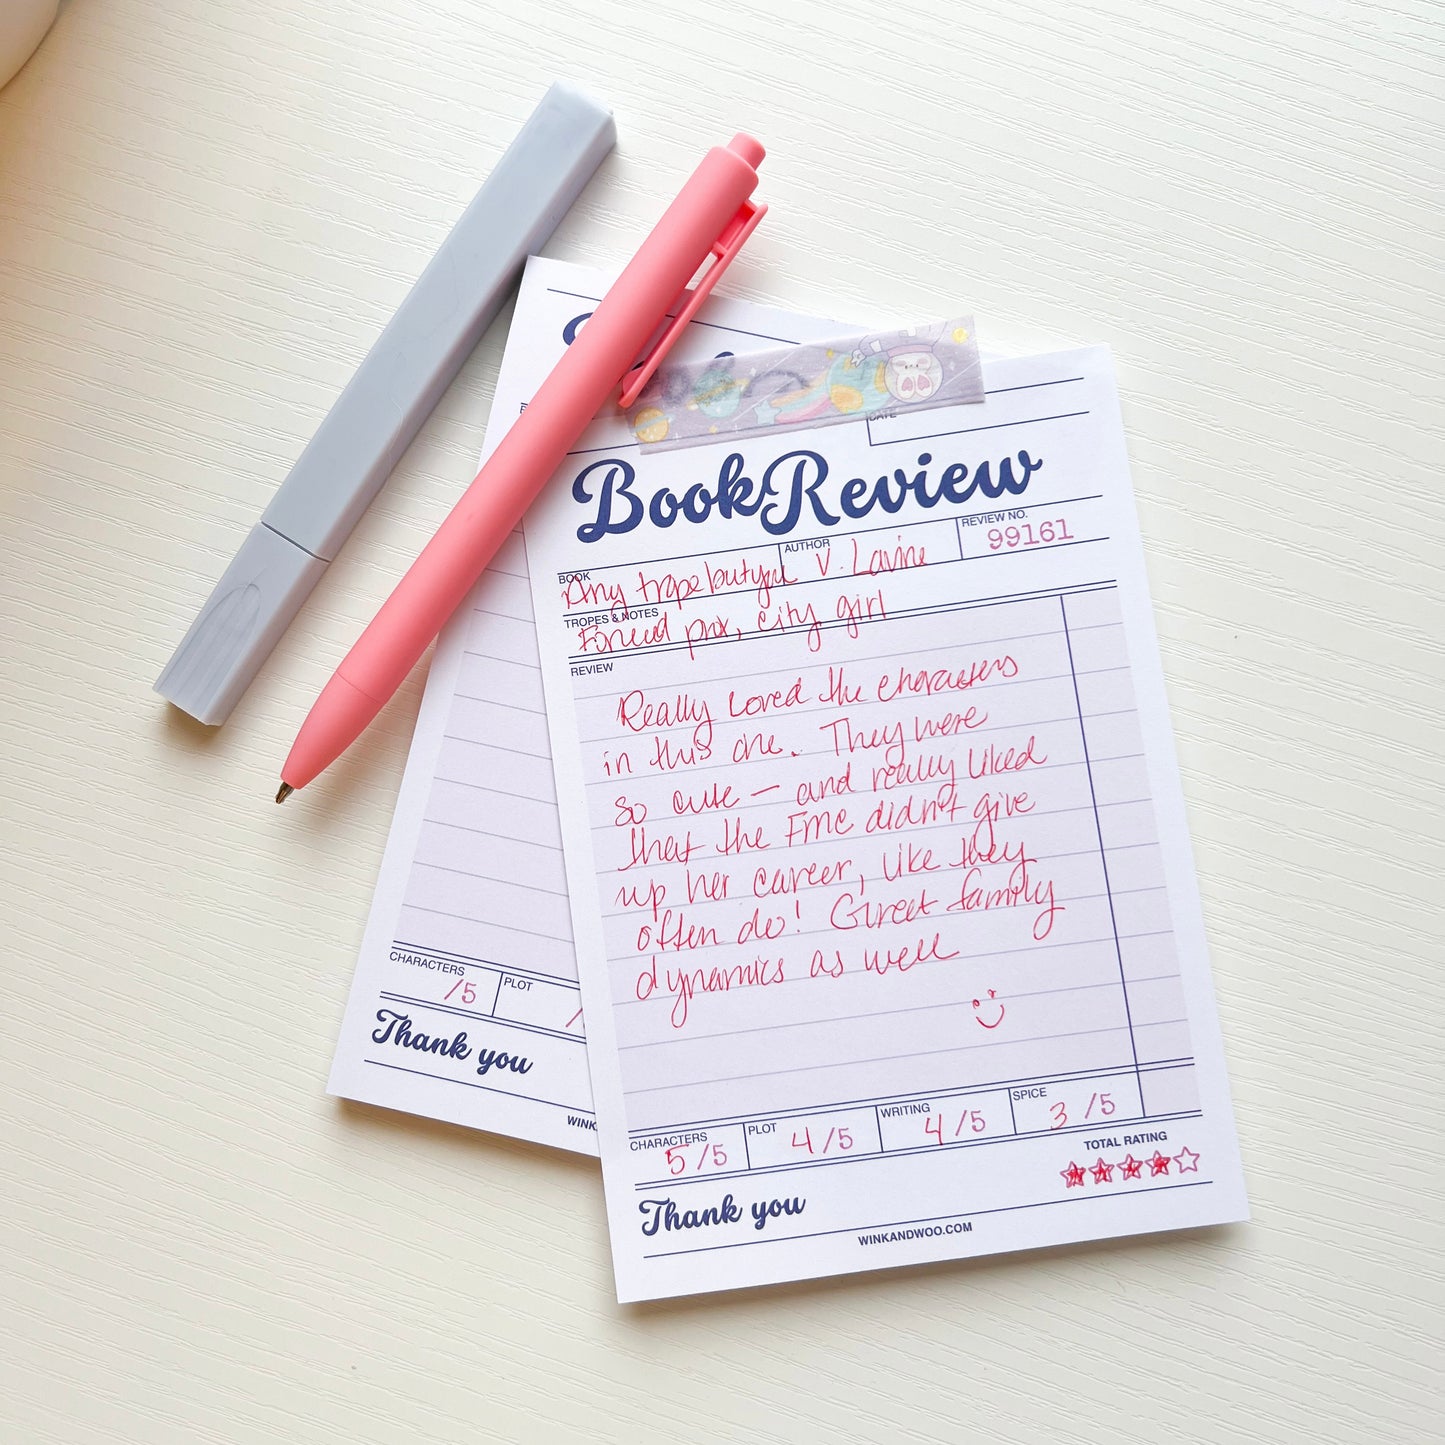 DATE
Book Review
BOOK
Any trope but you
AUTHOR
V. Lavine
REVIEW NO.
99161
TROPES & NOTES
Forced prox, city girl
REVIEW
Really loved the characters
in this one. They were
so cute — and really liked
that the FMC didn't give
up her career, like they
often do! Great family
dynamics as well
CHARACTERS
5/5
PLOT
4/5
WRITING
4/5
SPICE
3/5
TOTAL RATING
Thank you
WINKANDWOO.COM
CHARACTERS
/5
PLOT
/
Thank you
WINK